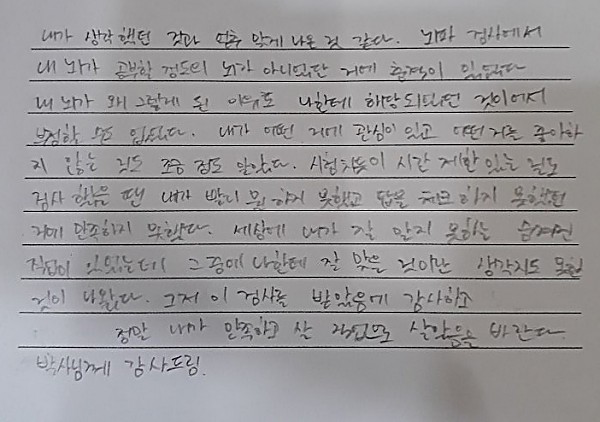 내가 생각했던 것과 얼추 맞게 나온 것 같다. 뇌파 검사에서
내 뇌가 공부할 정도의 뇌가 아니었단 거에 충격이 있었다
내 뇌가 왜 그렇게 된 이유도 나한테 해당되었던 것이어서
부정할 수도 없었다. 내가 어떤 거에 관심이 있고 어떤 거를 좋아하
지 않는 걸도 조금 정도 알았다. 시험처럼 시간 제한 있는 걸도
검사 했을 땐 내가 빨리 뭘 하지 못했고 답을 체크 하지 못했던
거에 만족하지 못했다. 세상에 내가 잘 알지 못하는 숨겨진
직업이 있었는데 그 중에 나한테 잘 맞은 것이란 생각지도 못한
것이 나왔다. 그저 이 검사를 받았음에 감사하고
정말 내가 만족하고 살 직업으로 살았음을 바란다.
박사님께 감사드림.